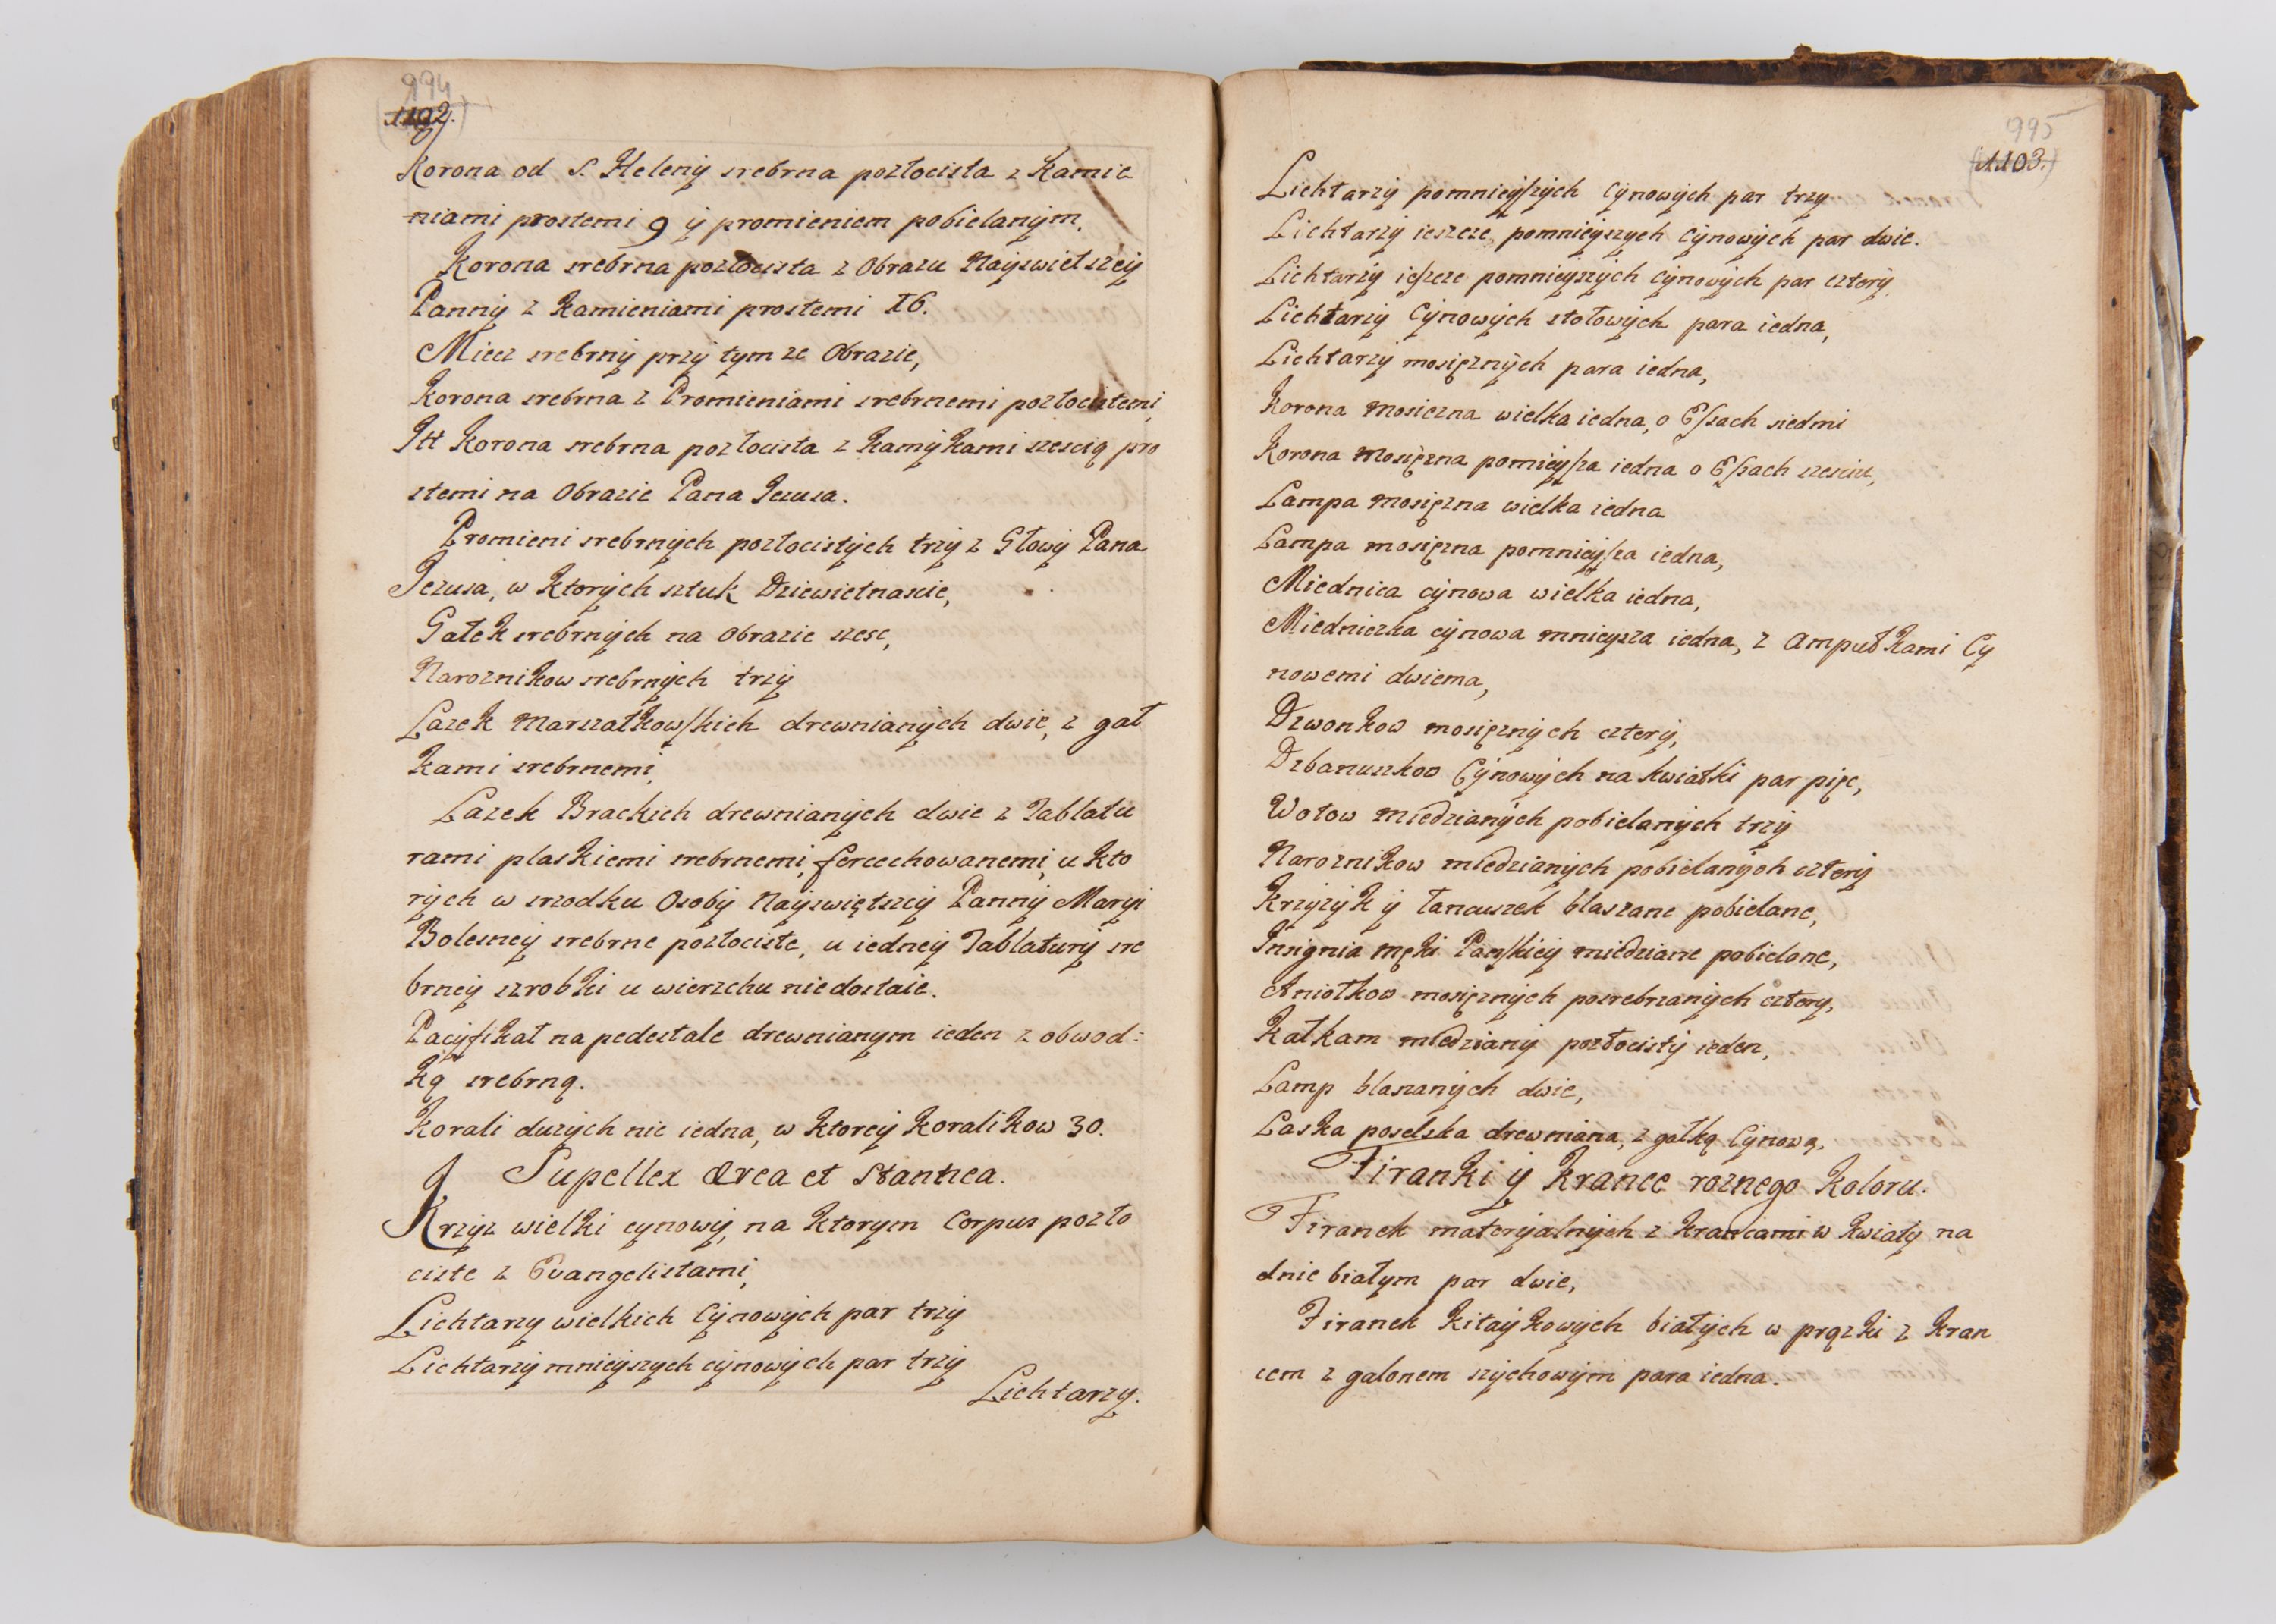 994
1102.
Korona od S. Heleny srebrna pozłocista z Kamie
niami prostemi 9 ÿ promieniem pobielanÿm,
Korona srebrna pozłocista z Obrazu Nayswietszeÿ
Pannÿ z Kamieniami prostemi 16.
Miecz srebrnÿ przÿ tym ze Obrazie,
Korona srebrna z Promieniami srebrnemi pozłocistemi,
Itt Korona srebrna pozłocista z Kamÿkami szescią pro
stemi na Obrazie Pana Jezusa.
Promieni srebrnÿch pozłocistÿch trzÿ z Głowÿ Pana
Jezusa, w ktorÿch sztuk Dziewietnascie,
Gałek srebrnÿch na Obrazie szesc,
Naroznikow srebrnÿch trzÿ
Lazek Marszałkowskich drewnianÿch dwie, z gał
kami srebrnemi,
Lazek Brackich drewnianÿch dwie z Tablatu
rami płaskiemi srebrnemi, fercechowanemi, u kto
rÿch w srzodku Osobÿ Nayswiętszeÿ Pannÿ Maryi
Bolesneÿ srebrne pozłociste, u iedneÿ Tablaturÿ sre
brneÿ szrobki u wierzchu niedostaie.
Pacyfikał na pedestale drewnianym ieden z obwod=
ką srebrną.
Korali duzÿch nic iedna, w ktoreÿ Koralikow 30.
Supellex Ærea et Stannea.
Krzyz wielki cynowÿ, na ktorym Corpus pozło
ciste z Evangelistami,
Lichtarzy wielkich Cÿnowÿch par trzÿ
Lichtarzÿ mnieÿszych cÿnowÿch par trzÿ
Lichtarzy.
995
1103.
Lichtarzÿ pomnieÿszÿch Cÿnowÿch par trzy
Lichtarzÿ ieszcze, pomnieÿszych Cÿnowÿch par dwie.
Lichtarzÿ ieszcze pomnieÿszÿch Cÿnowÿch par czterÿ
Lichtarzÿ Cÿnowÿch stołowÿch para iedna,
Lichtarzÿ mosięznÿch para iedna,
Korona Mosiezna wielka iedna, o Essach siedmi
Korona Mosięzna pomieÿsza iedna o Essach szesciu,
Lampa Mosięzna wielka iedna
Lampa mosięzna pomnieÿsza iedna,
Miednica cÿnowa wielka iedna,
Miedniczka cÿnowa mnieysza iedna, z Ampułkami Cy
nowemi dwiema,
Dzwonkow mosięznÿch czterÿ,
Dzbanuszkow Cÿnowÿch na kwiatki par pięc,
Wotow miedzianÿch pobielanÿch trzÿ
Naroznikow miedzianÿch pobielanÿch czterÿ
Krzyzÿk ÿ łancuszek blaszane pobielane,
Insignia męki Panskieÿ miedziane pobielane,
Aniołkow mosięznÿch posrebrzanÿch cztery,
Kałkam miedzianÿ pozłocistÿ ieden,
Lamp blaszanÿch dwie,
Laska poselska drewniana, z gałką Cÿnową.
Firanki ÿ krance roznego Koloru.
Firanek materÿalnÿch z krancami w kwiaty na
dnie białym par dwie,
Firanek Kitaÿkowÿch białÿch w prązki z kran
cem z galonem szÿchowÿm para iedna.